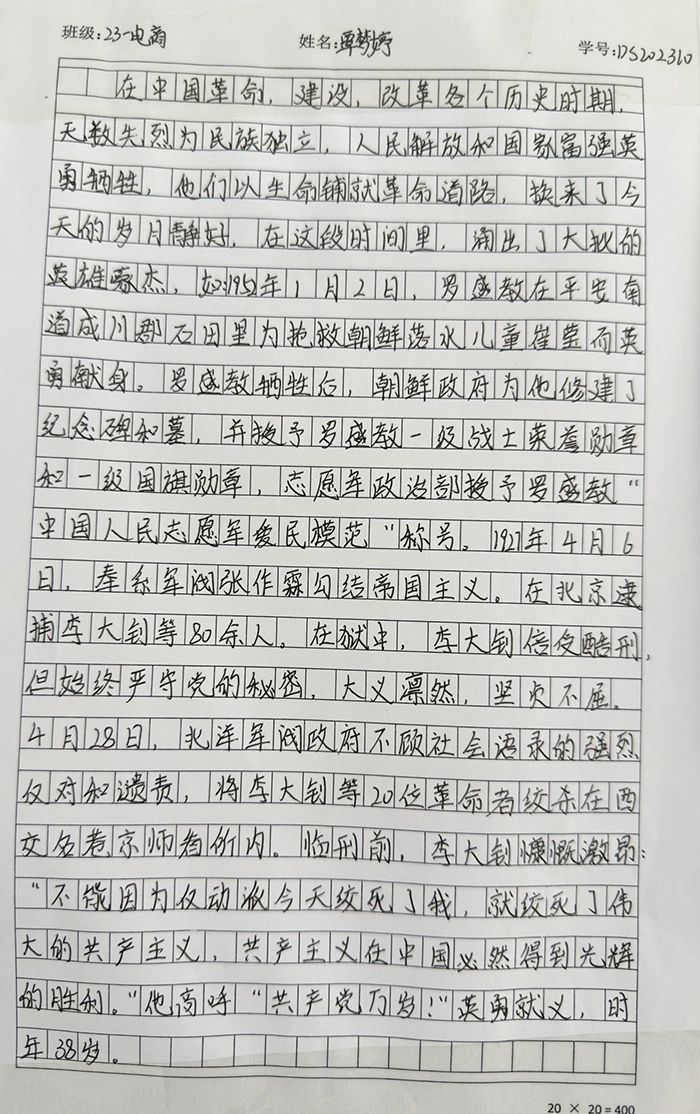 班级:23-电商 姓名:覃梦婷 学号:DS202310
在中国革命，建设，改革各个历史时期，
天数失烈为民族独立，人民解放和国家富强英
勇牺牲，他们以生命铺就革命道路，换来了今
天的岁月静好，在这段时间里，涌出了大批的
英雄豪杰，如:1952年1月2日，罗盛教在平安南
道成川郡石田里为抢救朝鲜落水儿童崔莹而英
勇献身。罗盛教牺牲后，朝鲜政府为他修建了
纪念碑和墓，并授予罗盛教一级战士荣誉勋章
和一级国旗勋章，志愿军政治部授予罗盛教“
中国人民志愿军爱民模范“称号。1927年4月6
日，奉系军阀张作霖勾结帝国主义。在北京逮
捕李大钊等80余人。在狱中，李大钊倍受酷刑，
但始终严守党的秘密，大义凛然，坚贞不屈。
4月28日，北洋军阀政府不顾社会语录的强烈
仅对和遗责，将李大钊等20位革命者绞杀在西
交名巷京师看价内。临刑前，李大钊慷慨激昂：
“不能因为仅动派今天绞死了我，就绞死了伟
大的共产主义，共产主义在中国必然得到光辉
的胜利。“他高呼“共产党万岁！“英勇就义，时
年38岁。
20 × 20=400